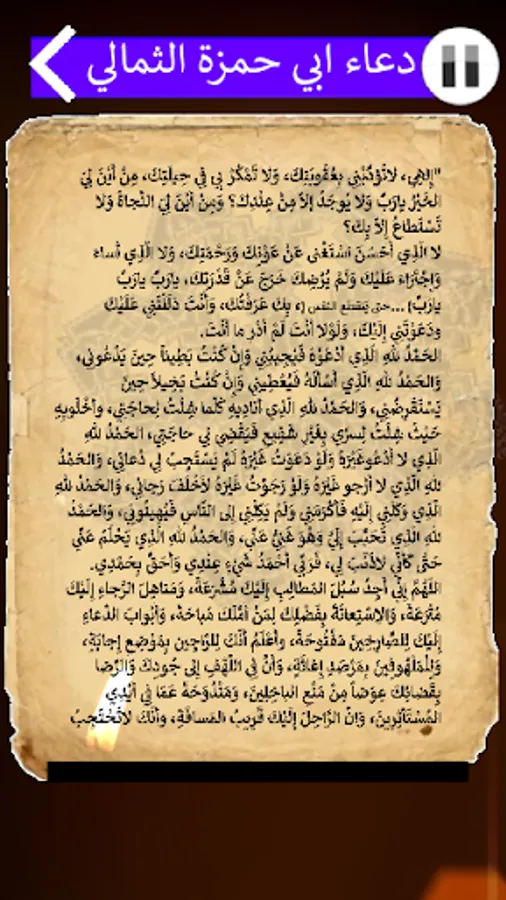 دعاء ابي حمزة الثمالي
"إِلهِي، لاتُؤَدِّبْنِي بِعُقُوبَتِكَ، وَلا تَمْكُرْ بِي فِي حِيلَتِكَ، مِنْ أَيْنَ لِيَ
الخَيْرُ يارَبِّ وَلا يُوجَدُ إِلاّ مِنْ عِنْدِكَ؟ وَمِنْ أَيْنَ لِيَ النَّجاةُ وَلا
تُسْتَطاعُ إِلاّ بِكَ؟
لا الَّذِي أَحْسَنَ اسْتَغْنى عَنْ عَوْنِكَ وَرَحْمَتِكَ، وَلا الَّذِي أَساءَ
وَاجْتَرَأَ عَلَيْكَ وَلَمْ يُرْضِكَ خَرَجَ عَنْ قُدْرَتِكَ، يارَبِّ يارَبِّ
يارَبِّ) ...حتى ينقطع النفس (، بِكَ عَرَفْتُكَ، وَأَنْتَ دَلَلْتَنِي عَلَيْكَ
ودَعَوْتَنِي إِلَيْكَ، وَلَوْلا أَنْتَ لَمْ أَدْرِ ما أَنْتَ.
الحَمْدُ للهِ الَّذِي أَدْعُوُهُ فَيُجِيبُنِي وَإِنْ كُنْتُ بَطِيئاً حِينَ يَدْعُونِي،
وَالحَمْدُ للهِ الَّذِي أَسْأَلُهُ فَيُعْطِينِي وَإِنْ كُنْتُ بَخِيلاً حِينَ
يَسْتَقْرِضُنِي، وَالحَمْدُ للهِ الَّذِي أُنادِيهِ كُلَّما شِئْتُ لِحاجَتِي، وَأَخْلُوبِهِ
حَيْثُ شِئْتُ لِسِرِّي بِغَيْرِ شَفِيعٍ فَيَقْضِي لِي حاجَتِي، الحَمْدُ للهِ
الَّذِي لا أَدْعُوغَيْرَهُ وَلَوْ دَعَوْتُ غَيْرَهُ لَمْ يَسْتَجِبْ لِي دُعائِي، وَالحَمْدُ
للهِ الَّذِي لا أَرْجو غَيْرَهُ وَلَوْ رَجَوْتُ غَيْرَهُ لاَخْلَفَ رَجائِي، وَالحَمْدُ للهِ
الَّذِي وَكَلَنِي إِلَيْهِ فَأَكْرَمَنِي وَلَمْ يَكِلْنِي إِلى النَّاسِ فَيُهِينُونِي، وَالحَمْدُ
للهِ الَّذِي تَحَبَّبَ إِلَيَّ وَهُوَ غَنِيُّ عَنِّي، وَالحَمْدُ للهِ الَّذِي يَحْلُمُ عَنِّي
حَتّى كَأَنِّي لاذَنْبَ لِي، فَرَبِّي أَحْمَدُ شَيْءٍ عِنْدِي وَأَحَقُّ بِحَمْدِي.
اللّهُمَّ إِنِّي أَجِدُ سُبُلَ المَطالِبِ إِلَيْكَ مُشْرَعَةً، وَمَناهِلَ الرَّجاءِ إِلَيْكَ
مُتْرَعَةً، وَالاِسْتِعانَةَ بِفَضْلِكَ لِمَنْ أَمَّلَكَ مُباحَةً، وَأَبْوابَ الدُّعاءِ
إِلَيْكَ لِلصَّارِخِينَ مَفْتُوحَةً، وأَعْلَمُ أَنَّكَ لِلرَّاجِينَ بِمَوْضِعِ إِجابَةٍ،
وَلِلْمَلْهُوفِينَ بِمَرْصَدِ إِغاثَةٍ، وَأَنَّ فِي اللَهْفِ إِلى جُودِكَ وَالرِّضا
بِقَضائِكَ عِوَضاً مِنْ مَنْعِ الباخِلِينَ، وَمَنْدُوحَةً عَمّا فِي أَيْدِي
المُسْتَأْثِرِينَ، وَانَّ الرَّاحِلَ إِلَيْكَ قَرِيبُ المَسافَةِ، وَأَنَّكَ لاتَحْتَجِبُ